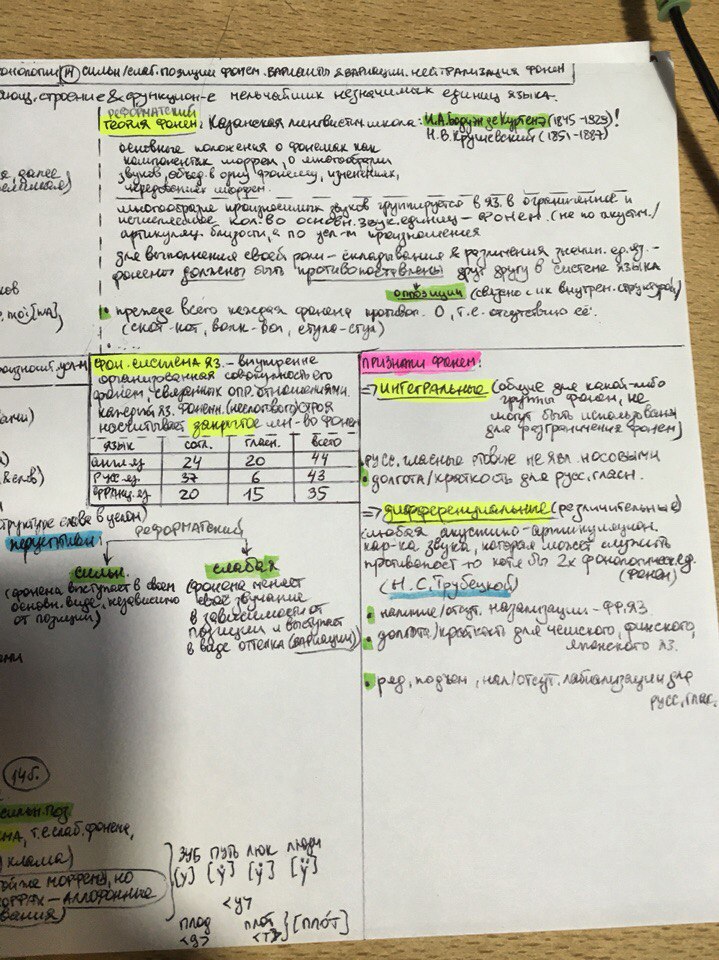 онологии (14) сильн/слаб. позиции фонем. варианты & вариации. нейтрализация фонем
строение & функцион-е мельчайших незначимых единиц языка.
реформатский
теория фонем: Казанская лингвистич школа: И.А. Бодуэн де Куртенэ (1845-1929)!
Н.В. Крушевский (1851-1887)
основные положения о фонемах как
компонентах морфем, о многообразии
звуков, объед. в одну фонему, изменениях,
чередованиях морфем.
многообразие произносимых звуков группируется в яз. в ограниченное и
исчисляемое кол-во основн. звук. единиц - фонем. (не по акустич./
артикуляц. близости, а по
произношения
для выполнения своей роли - складывания & различения значим. ед. яз. -
фонемы должны быть противопоставлены друг другу в системе языка
оппозиции (связано с их внутрен. структурой)
• прежде всего каждая фонема противоп. О, т.е. отсутствию её.
(скот-кот, волк-вол, стула-стул)
далее
ков
, мо: [ма]
произносит. усл-я
фон. система яз. - внутренне
организованная совокупность его
фонем, связанных опр. отношениями.
каждый яз. фонемн. (неслогового) строя
насчитывает закрытое мн-во фонем
язык согл. гласн. всего
англ. яз 24 20 44
русс. яз. 37 6 43
франц. яз. 20 15 35
признаки фонем:
=> интегральные (общие для какой-либо
группы фонем, не
могут быть использованы
для разграничения фонем)
• русс. гласные ртовые не явл. носовыми
• долгота/краткость для русс. гласн.
=> дифференциальные (различительные)
(любая акустико-артикуляцион.
хар-ка звука, которая может служить
противопост-ю хотя бы 2х фонологическ. ед.
(фонем)
(Н.С. Трубецкой)
• наличие/отсут. назализации - фр. яз.
• долгота/краткость для чешского, финского,
японского яз.
• ряд, подъём, нал/отсут. лабиализации для
русс. гласн.
структуре слова в целом)
реформатский
перцептивн.
сильн.
(фонема выступает в своём
основн. виде, независимо
от позиции)
слабая
(фонема меняет
своё звучание
в зависимости от
позиции и выступает
в виде оттенка (вариации))
14б.
сильн. поз
, т.е. слаб. фонема,
клама)
той же морфемы, но
аллофонные
вания)
зуб путь люк люди
[у] [у̇] [у̇] [ÿ]
<у>
плод плот
<д> <т> } [плот]